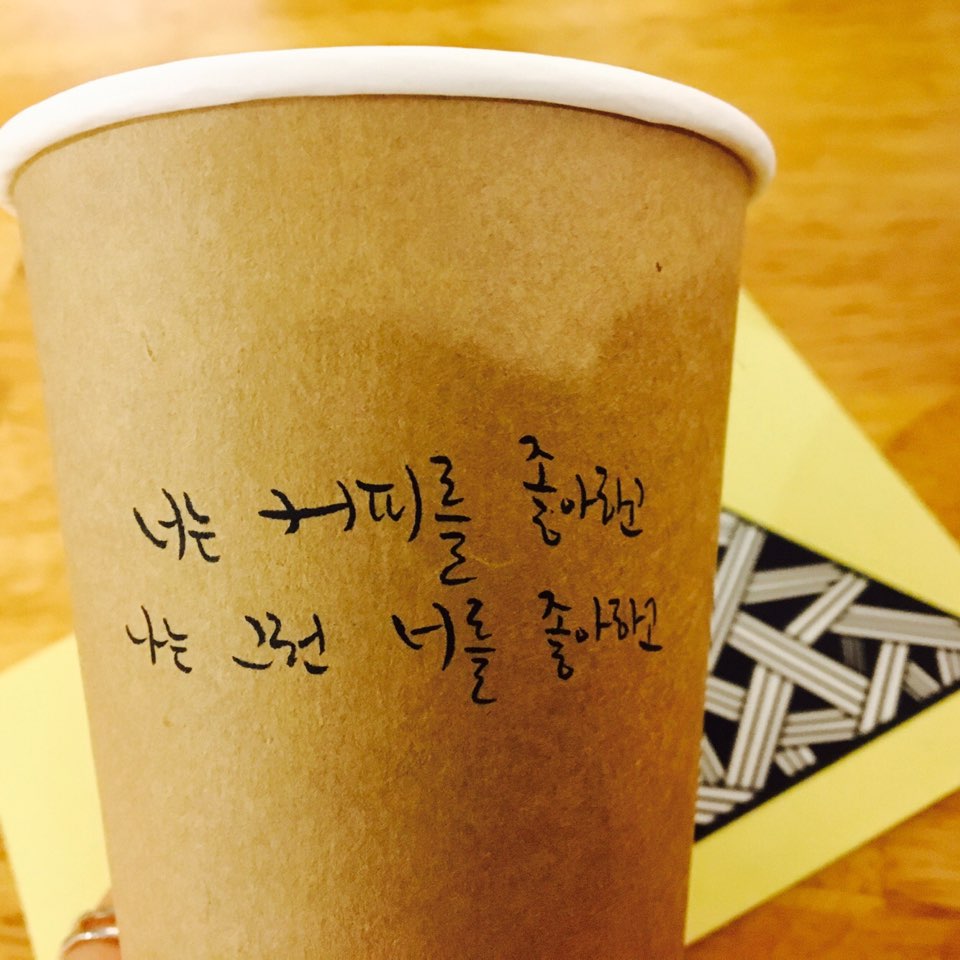 너는 커피를 좋아하고
나는 그런 너를 좋아하고